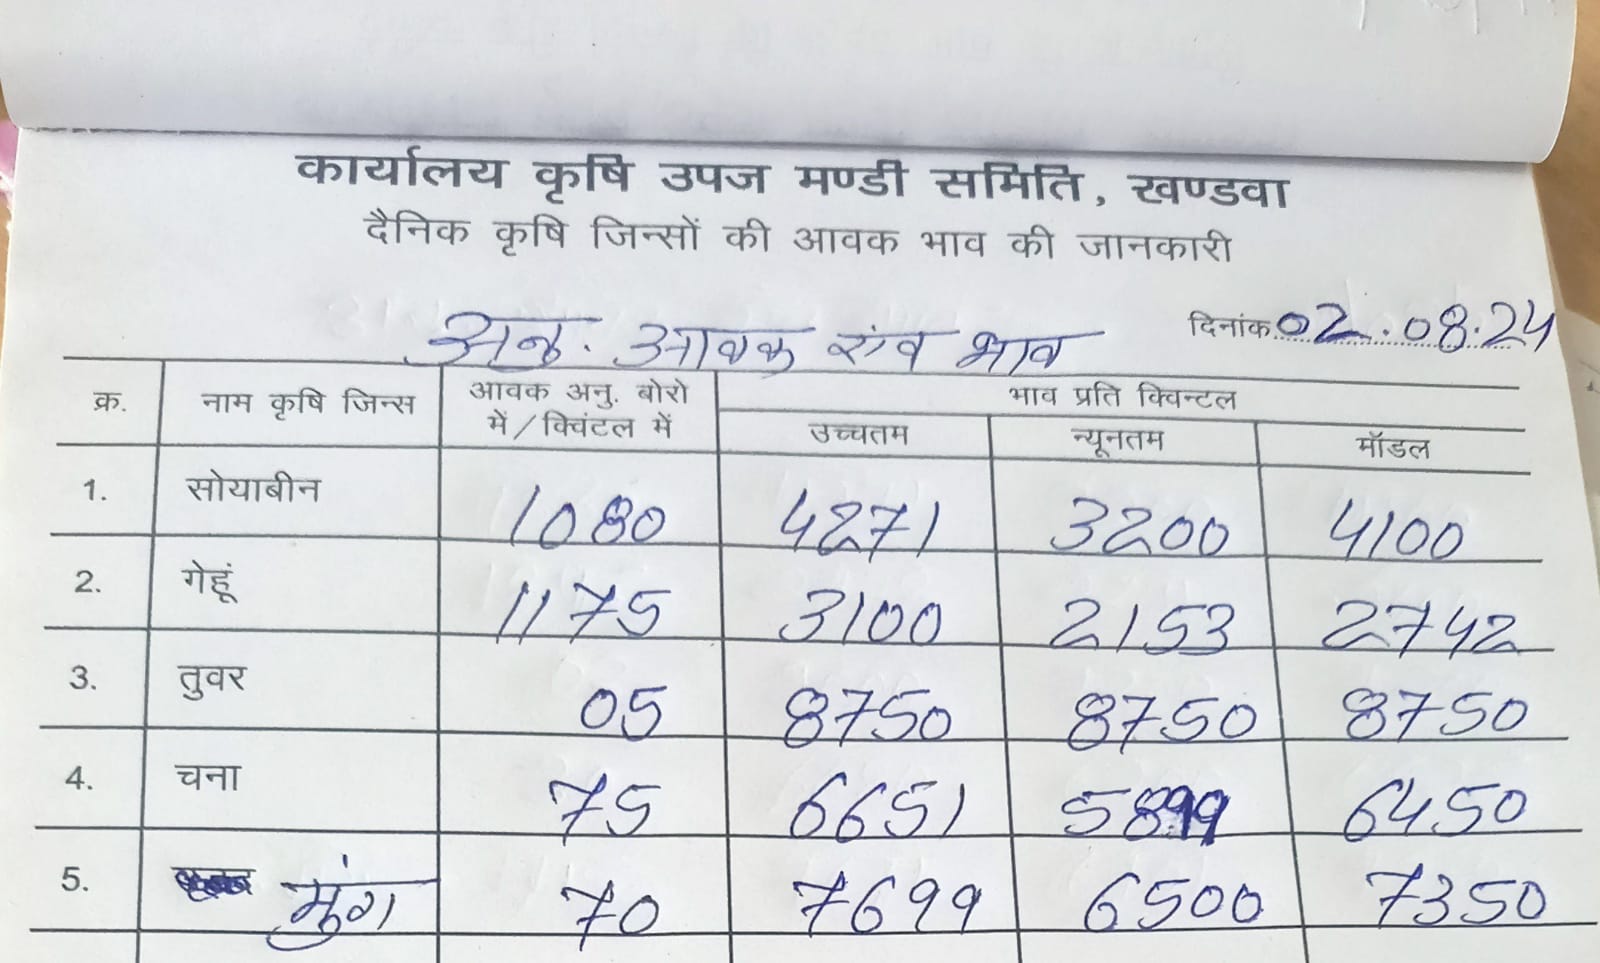 कार्यालय कृषि उपज मण्डी समिति, खण्डवा
दैनिक कृषि जिन्सों की आवक भाव की जानकारी
अनु. आवक एंव भाव दिनांक 02.08.24
क्र. नाम कृषि जिन्स आवक अनु. बोरो में/क्विंटल में भाव प्रति क्विन्टल
उच्चतम न्यूनतम मॉडल
1. सोयाबीन 1080 4271 3200 4100
2. गेहूं 1175 3100 2153 2742
3. तुवर 05 8750 8750 8750
4. चना 75 6651 5899 6450
5. मुंग 70 7699 6500 7350